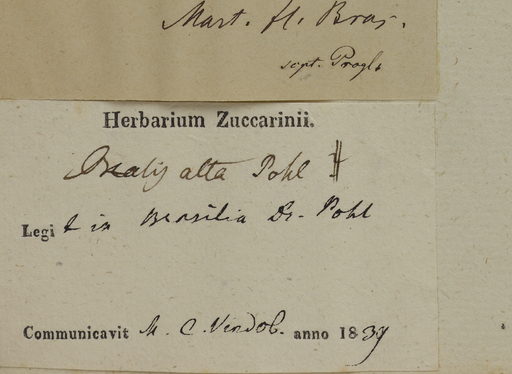 Mart. fl. Bras.
scpt. Progl.
Herbarium Zuccarinii.
Oxalis alta Pohl
Legit in Brasilia Dr. Pohl
Communicavit M. C. Vindob. anno 1839